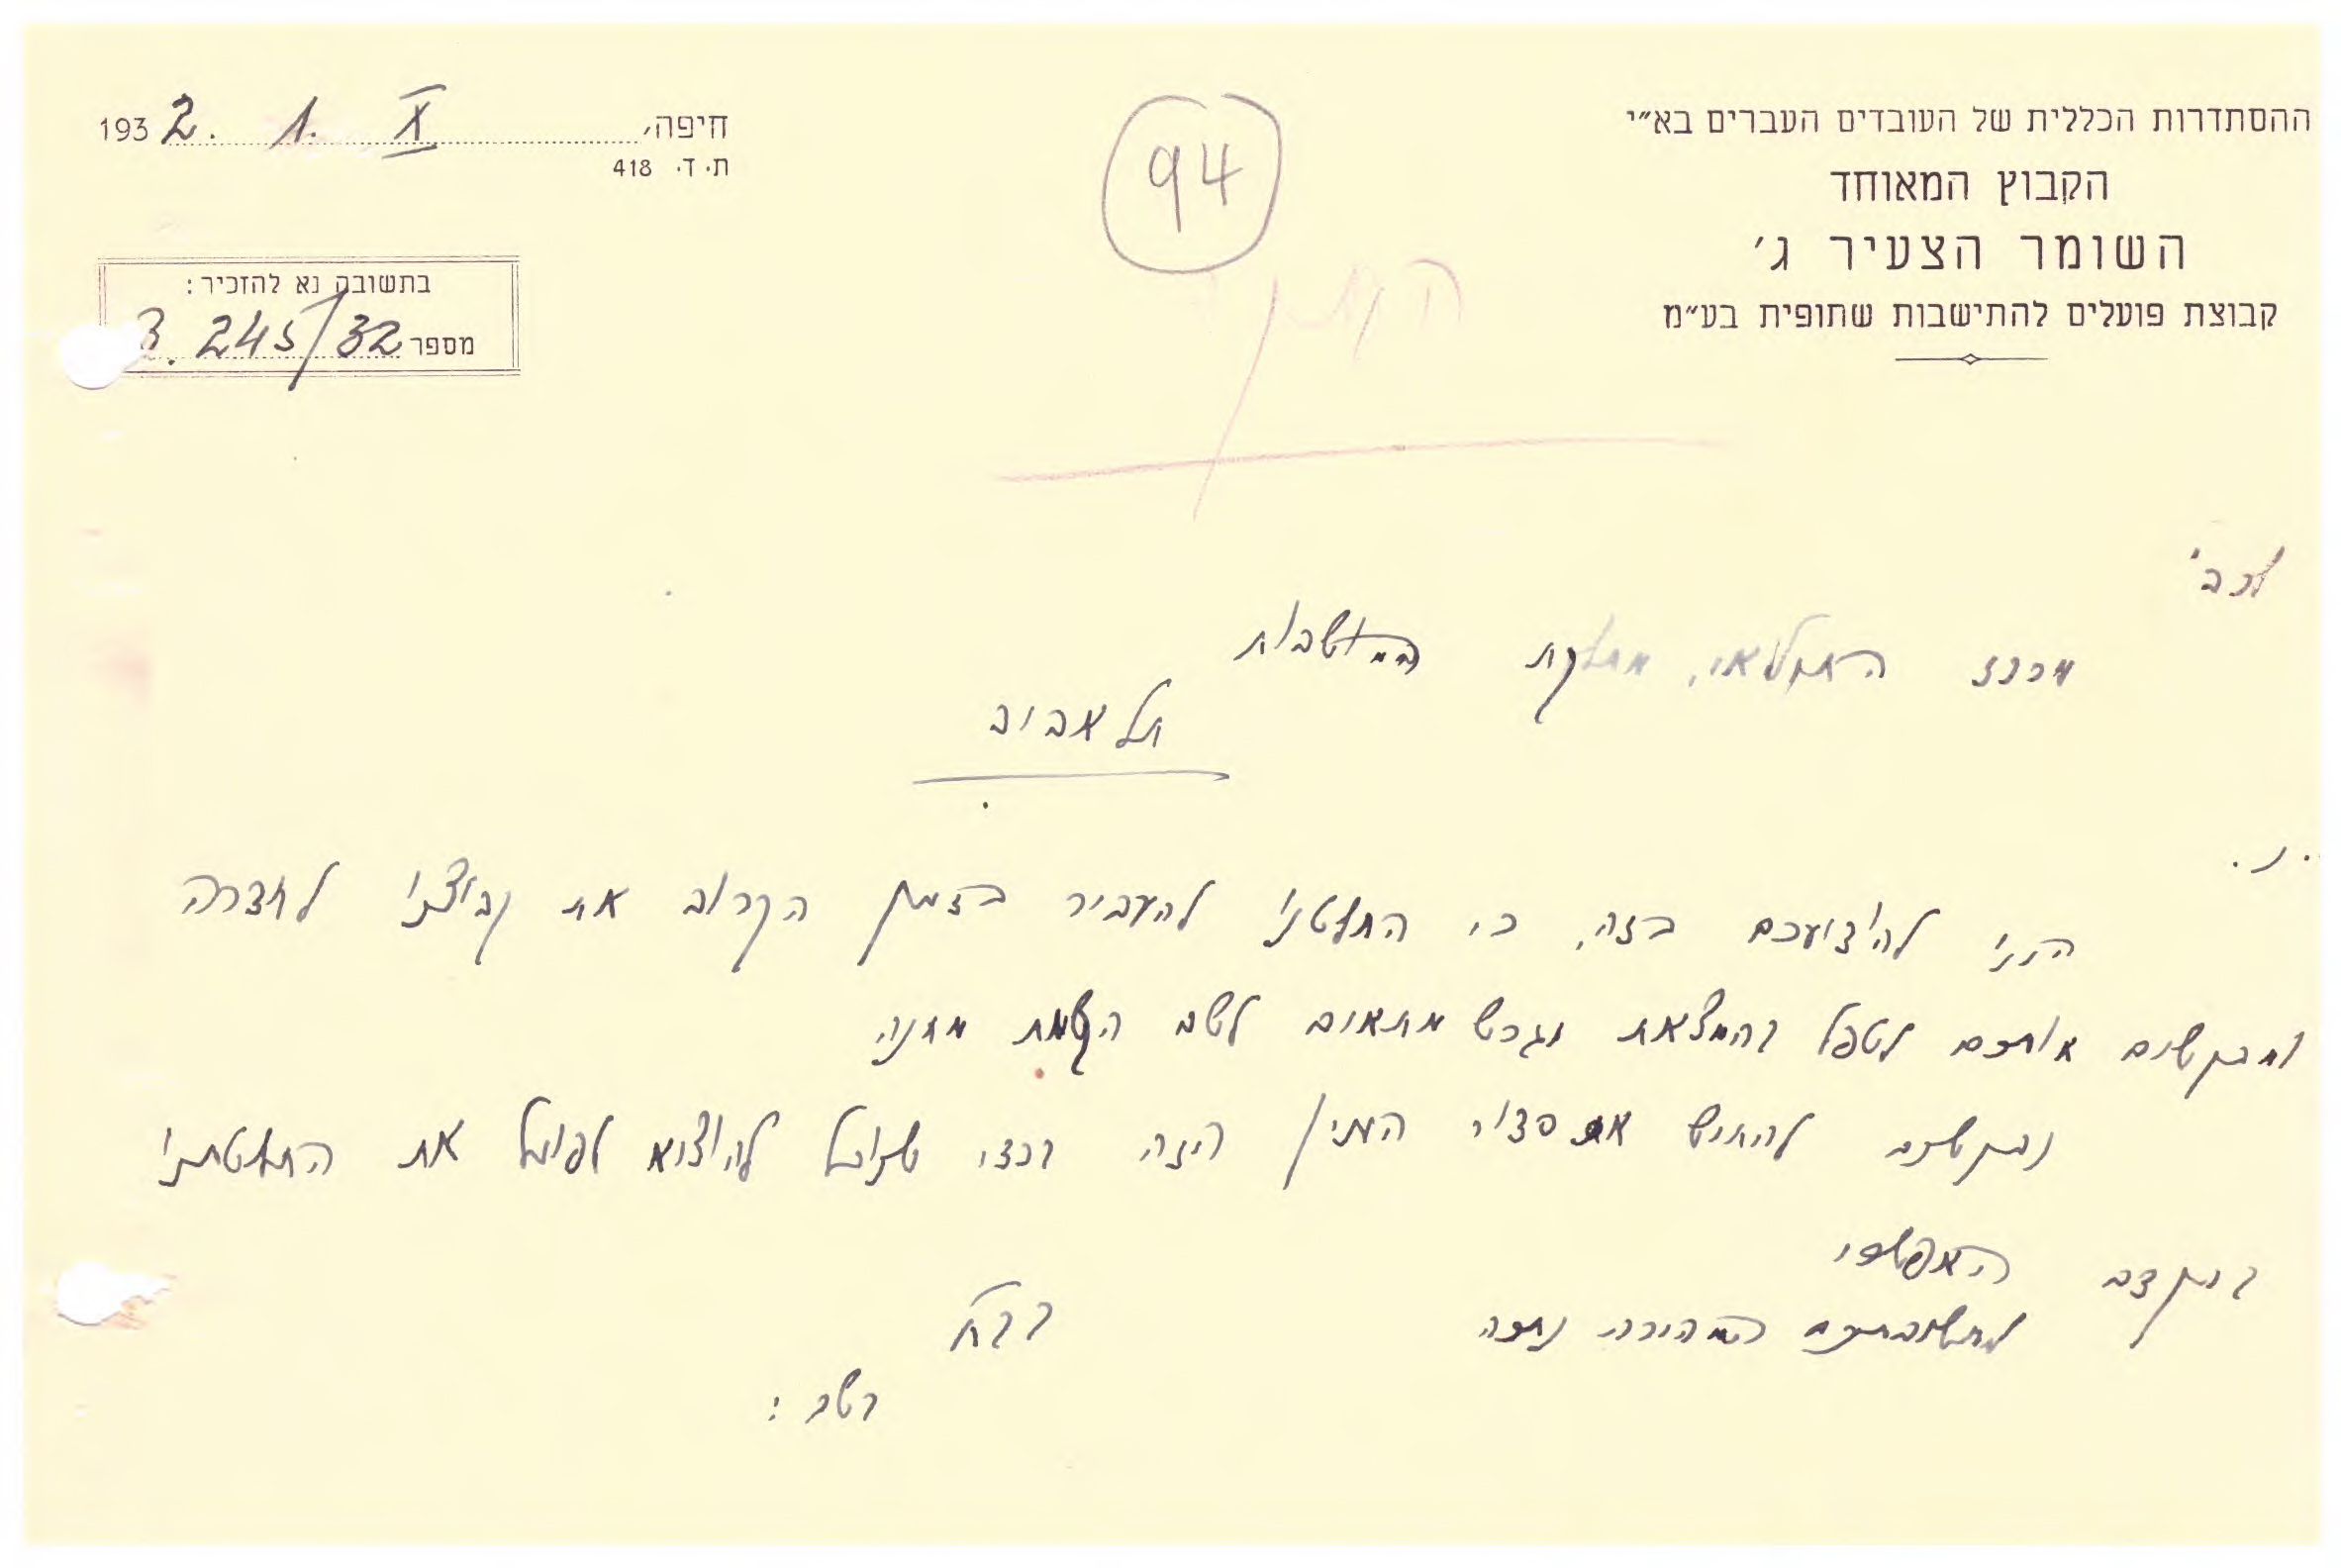 ההסתדרות הכללית של העובדים העברים בא״י
הקבוץ המאוחד
השומר הצעיר ג׳
קבוצת פועלים להתישבות שתופית בע״מ
חיפה, X .1 .1932
ת. ד. 418
94
בתשובה נא להזכיר:
מספר 3. 245/32
לכב'
מרכז החקלאי, מחלקת המושבות
תל אביב
א. נ.
הננו להודיעכם בזה, כי החלטנו להעביר בזמן הקרוב את קבוצתנו לחדרה
ומבקשים אותכם לטפל בהמצאת מגרש מתאים לשם הקמת מחנה
נבקשכם להחיש את סדור הענין הזה בכדי שנוכל להוציא לפועל את החלטתנו
בהקדם האפשרי
לתשובתכם המהירה נחכה
בב״ח
בשם: